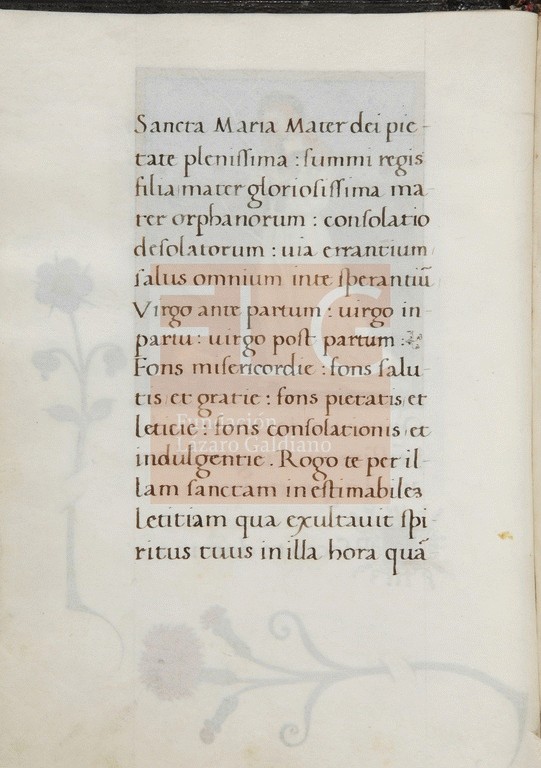 Sancta Maria Mater dei pie-
tate pleniſſima : ſummi regis
filia mater glorioſiſſima ma-
ter orphanorum : conſolatio
deſolatorum : uia errantium
ſalus omnium in te ſperantiū
Virgo ante partum : uirgo in-
partu : uirgo poſt partum :
Fons miſericordie : fons ſalu-
tis et gratie : fons pietatis et
leticie : fons conſolationis et
indulgentie . Rogo te per il-
lam ſanctam ineſtimabilem
letitiam qua exultauit ſpi-
ritus tuus in illa hora quā
FLG
Fundación
Lázaro Galdiano